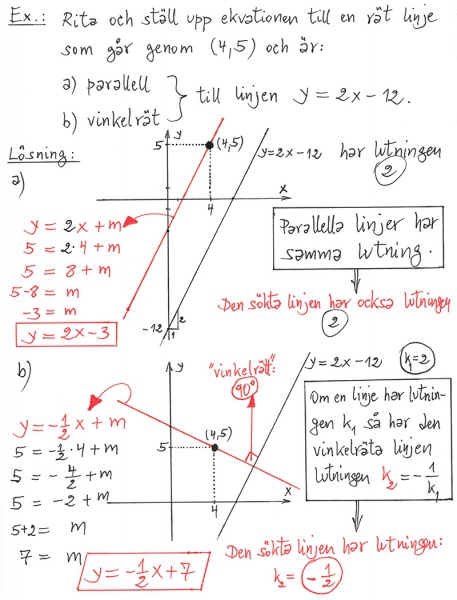 Ex.: Rita och ställ upp ekvationen till en rät linje
som går genom (4,5) och är:
a) parallell
b) vinkelrät
till linjen y = 2x - 12.
Lösning:
a)
y
5
(4,5)
x
4
-12
1
2
y = 2x - 12 har lutningen
2
y = 2x + m
5 = 2·4 + m
5 = 8 + m
5-8 = m
-3 = m
y = 2x - 3
Parallella linjer har
samma lutning.
Den sökta linjen har också lutningen
2
b)
y
"vinkelrätt":
90°
5
(4,5)
x
4
y = 2x - 12
k₁ = 2
y = -1/2 x + m
5 = -1/2 · 4 + m
5 = -4/2 + m
5 = -2 + m
5+2 = m
7 = m
y = -1/2 x + 7
Om en linje har lutnin-
gen k₁ så har den
vinkelräta linjen
lutningen k₂ = -1/k₁
Den sökta linjen har lutningen:
k₂ = -1/2